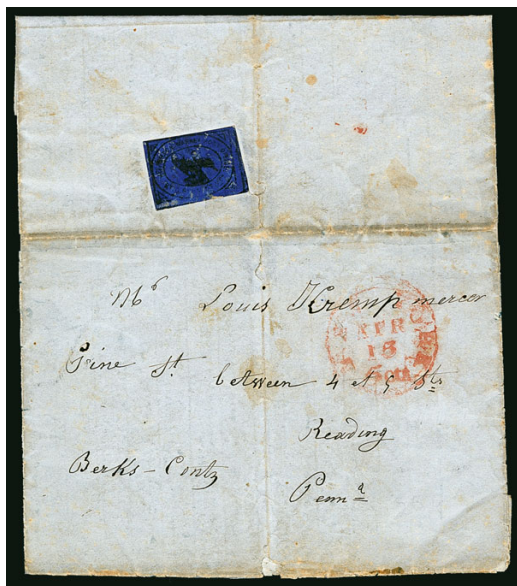 Mr Louis Kremp mercer
Pine St between 4 et 5 Sts
Reading
Berks - Conty
Penna
APR
15
5cts